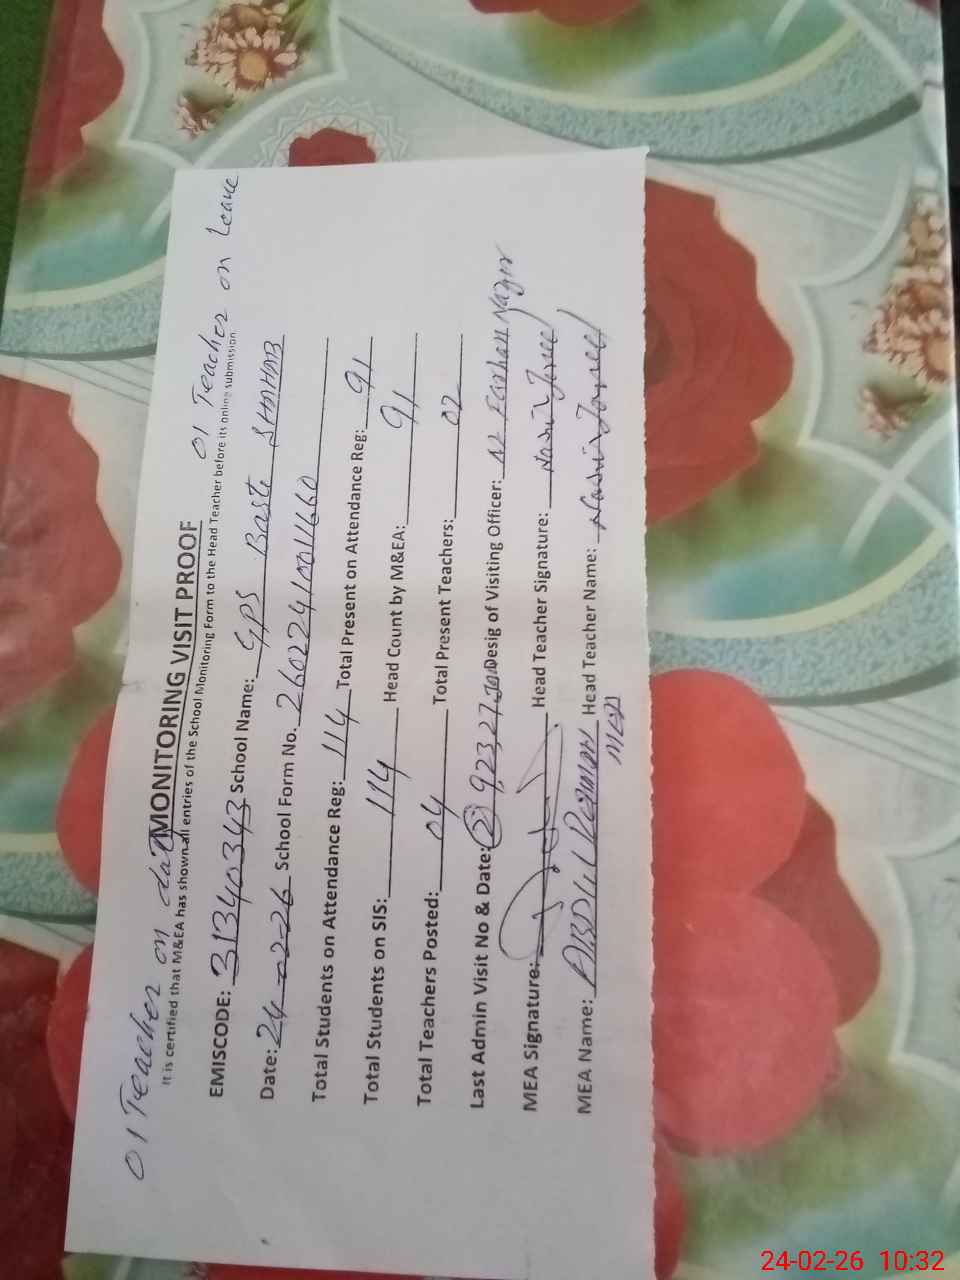 01 Teacher on duty 01 Teacher on Leave
MONITORING VISIT PROOF
It is certified that M&EA has shown all entries of the School Monitoring Form to the Head Teacher before its online submission.
EMISCODE: 31340343 School Name: GPS Basti SHAHAB
Date: 24-02-26 School Form No. 26022410011660
Total Students on Attendance Reg: 114 Total Present on Attendance Reg: 91
Total Students on SIS: 114 Head Count by M&EA: 91
Total Teachers Posted: 04 Total Present Teachers: 02
Last Admin Visit No & Date: Desig of Visiting Officer: Farhan Nazir
MEA Signature: Head Teacher Signature:
MEA Name: ABDUL Rehman Head Teacher Name:
24-02-26 10:32